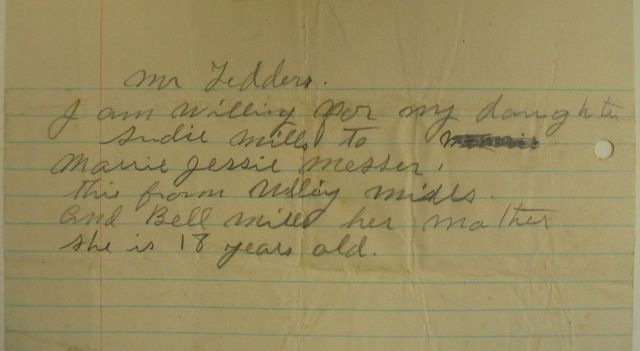 Mr Fedders.
I am willing for my daughter
Sudie Mills to
Marrie Jessie Messer.
this from Mills.
and Bell Mills her mother
she is 18 years old.